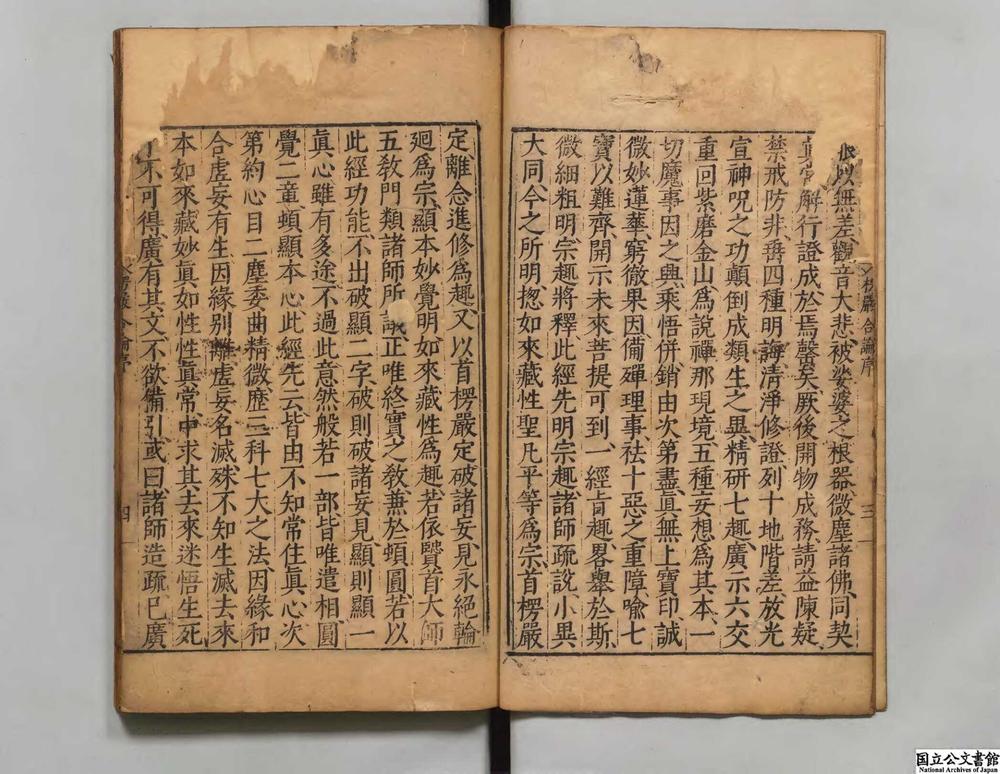 根以無差觀音大悲、被娑婆之根器、微塵諸佛、同契
解行證成於焉馨矣、厥後開物成務、請益陳疑、
禁戒防非、垂四種明誨、清淨修證、列十地階差、放光
宣神呪之功、顛倒成類生之異、精研七趣、廣示六交、
重回紫磨金山、爲說禪那現境、五種妄想爲其本、一
切魔事因之興、乘悟併銷、由次第盡、眞無上寶印、誠
微妙蓮華、窮徹果因、備殫理事、祛十惡之重障、喻七
寶以難齊、開示未來、菩提可到、一經旨趣、畧舉於斯、
微細粗明、宗趣將釋、此經先明宗趣、諸師疏說、小異
大同、今之所明、揔如來藏性、聖凡平等爲宗、首楞嚴
楞嚴合論序
三
定離念進修爲趣、又以首楞嚴定破諸妄見、永絕輪
廻爲宗、顯本妙覺明、如來藏性爲趣、若依賢首大師
五教門類、諸師所議、正唯終實之教、兼於頓圓、若以
此經功能、不出破顯二字、破則破諸妄見、顯則顯一
眞心、雖有多途、不過此意、然般若一部、皆唯遣相、圓
覺二章、頓顯本心、此經先云、皆由不知常住眞心、次
第約心目二塵、委曲精微、歷三科七大之法、因緣和
合、虛妄有生、因緣別離、虛妄名滅、殊不知生滅去來、
本如來藏妙眞如性、性眞常中、求其去來迷悟生死、
了不可得、廣有其文、不欲備引、或曰諸師造疏已廣
楞嚴合論序
四
国立公文書館
National Archives of Japan